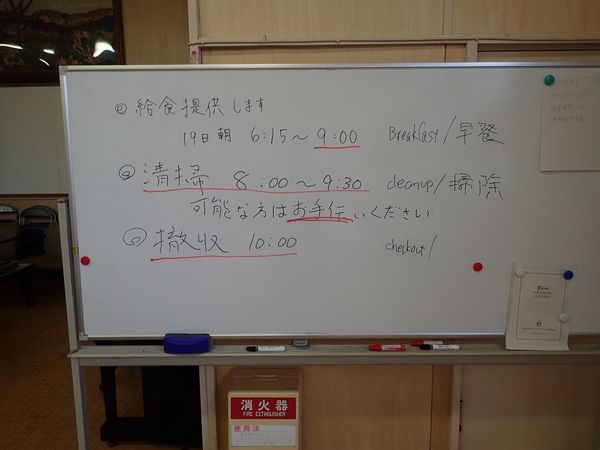 給食提供します
19日朝 6:15～9:00 Breakfast/早餐
清掃 8:00～9:30 cleanup/掃除
可能な方はお手伝いください
撤収 10:00 checkout/
消火器
FIRE EXTINGUISHER
使用法